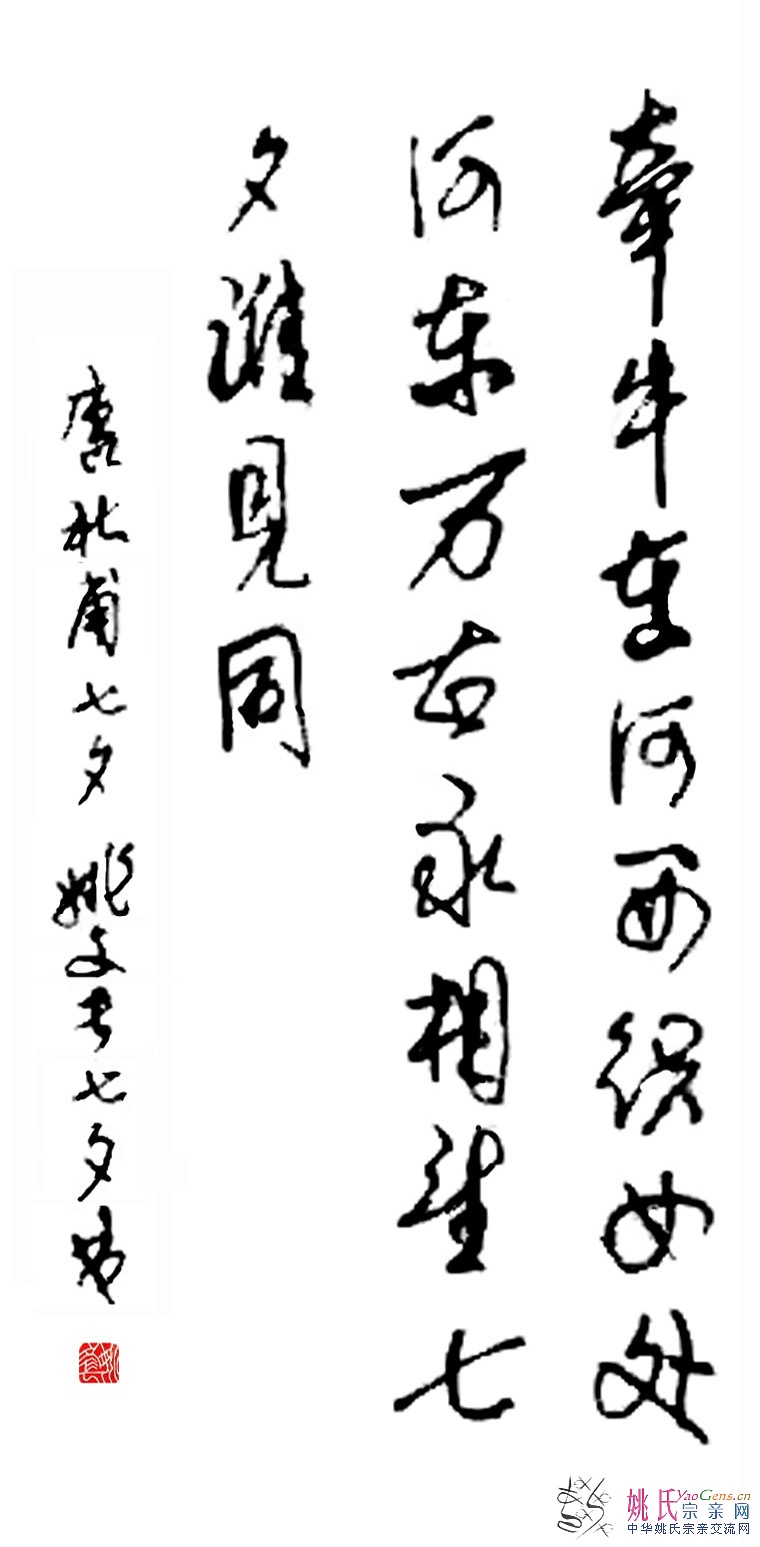 牵牛在河西织女处
河东万古永相望七
夕谁见同
唐杜甫七夕 姚文七夕
姚氏宗亲网
YaoGens.cn
中华姚氏宗亲交流网